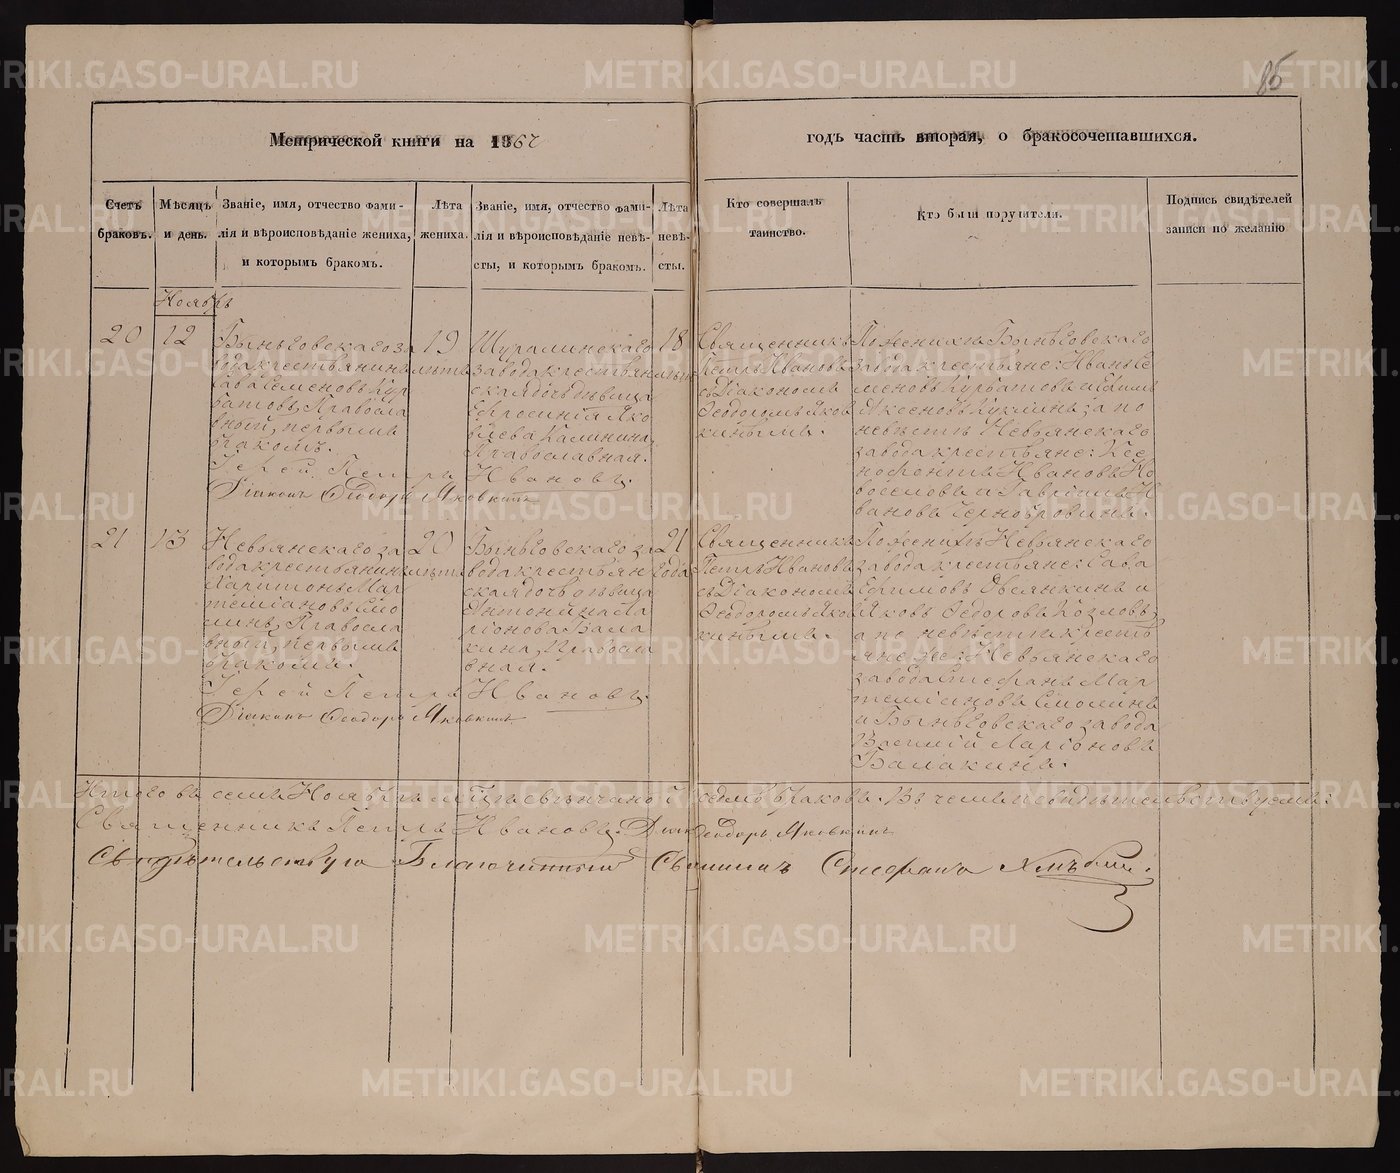 85
Метрической книги на 1867 годъ часть вторая, о бракосочетавшихся.
Счетъ браковъ.
Мѣсяцъ и день.
Званіе, имя, отчество фами-
лія и вѣроисповѣданіе жениха,
и которымъ бракомъ.
Лѣта
жениха.
Званіе, имя, отчество фами-
лія и вѣроисповѣданіе невѣ-
сты, и которымъ бракомъ.
Лѣта
невѣ-
сты.
Кто совершалъ
таинство.
Кто были поручители.
Подпись свидѣтелей
записи по желанію
Ноябрь
20
12
Быньговскаго за
вода крестьянинъ
Сава Семеновъ Кур
батовъ, Правосла
вной, первымъ
бракомъ.
19
лѣтъ
Шуралинскаго
завода крестьян
ская дочь дѣвица
Ефросинія Яко
влева Калинина,
Православная.
18
лѣтъ
Священникъ
Петръ Ивановъ
съ Діакономъ
Феодоромъ Яков
кинымъ.
По женихѣ Быньговскаго
завода крестьяне: Иванъ Се
меновъ Курбатовъ и Ефимъ
Аксеновъ Куклинъ; а по
невѣстѣ Невьянскаго
завода крестьяне: Ксе
нофонтъ Ивановъ Но
воселовъ и Гавріилъ И
вановъ Чернобровинъ.
Іерей Петръ Ивановъ.
Діаконъ Феодоръ Яковкинъ
21
13
Невьянскаго за
вода крестьянинъ
Харитонъ Мар
теміановъ Смо
линъ, Правосла
вной, первымъ
бракомъ.
20
лѣтъ
Быньговскаго за
вода крестьян
ская дочь дѣвица
Антонина Ла
ріонова Бала
кина, Правосла
вная.
21
года
Священникъ
Петръ Ивановъ
съ Діакономъ
Феодоромъ Яков
кинымъ.
По женихѣ Невьянскаго
завода крестьяне: Сава
Ефимовъ Овсянкинъ и
Яковъ Федоровъ Козловъ,
а по невѣстѣ кресть
яне же: Невьянскаго
завода Стефанъ Мар
теміановъ Смолинъ
и Быньговскаго завода
Василій Ларіоновъ
Балакинъ.
Іерей Петръ Ивановъ.
Діаконъ Феодоръ Яковкинъ
Итого въ семъ Ноябрѣ мѣсяцѣ свѣнчано седмь браковъ. Въ чемъ и свидѣтельствуемъ:
Священникъ Петръ Ивановъ. Діак Феодоръ Яковкинъ
Свидѣтельствую Благочинный Священникъ Стефанъ
METRIKI.GASO-URAL.RU